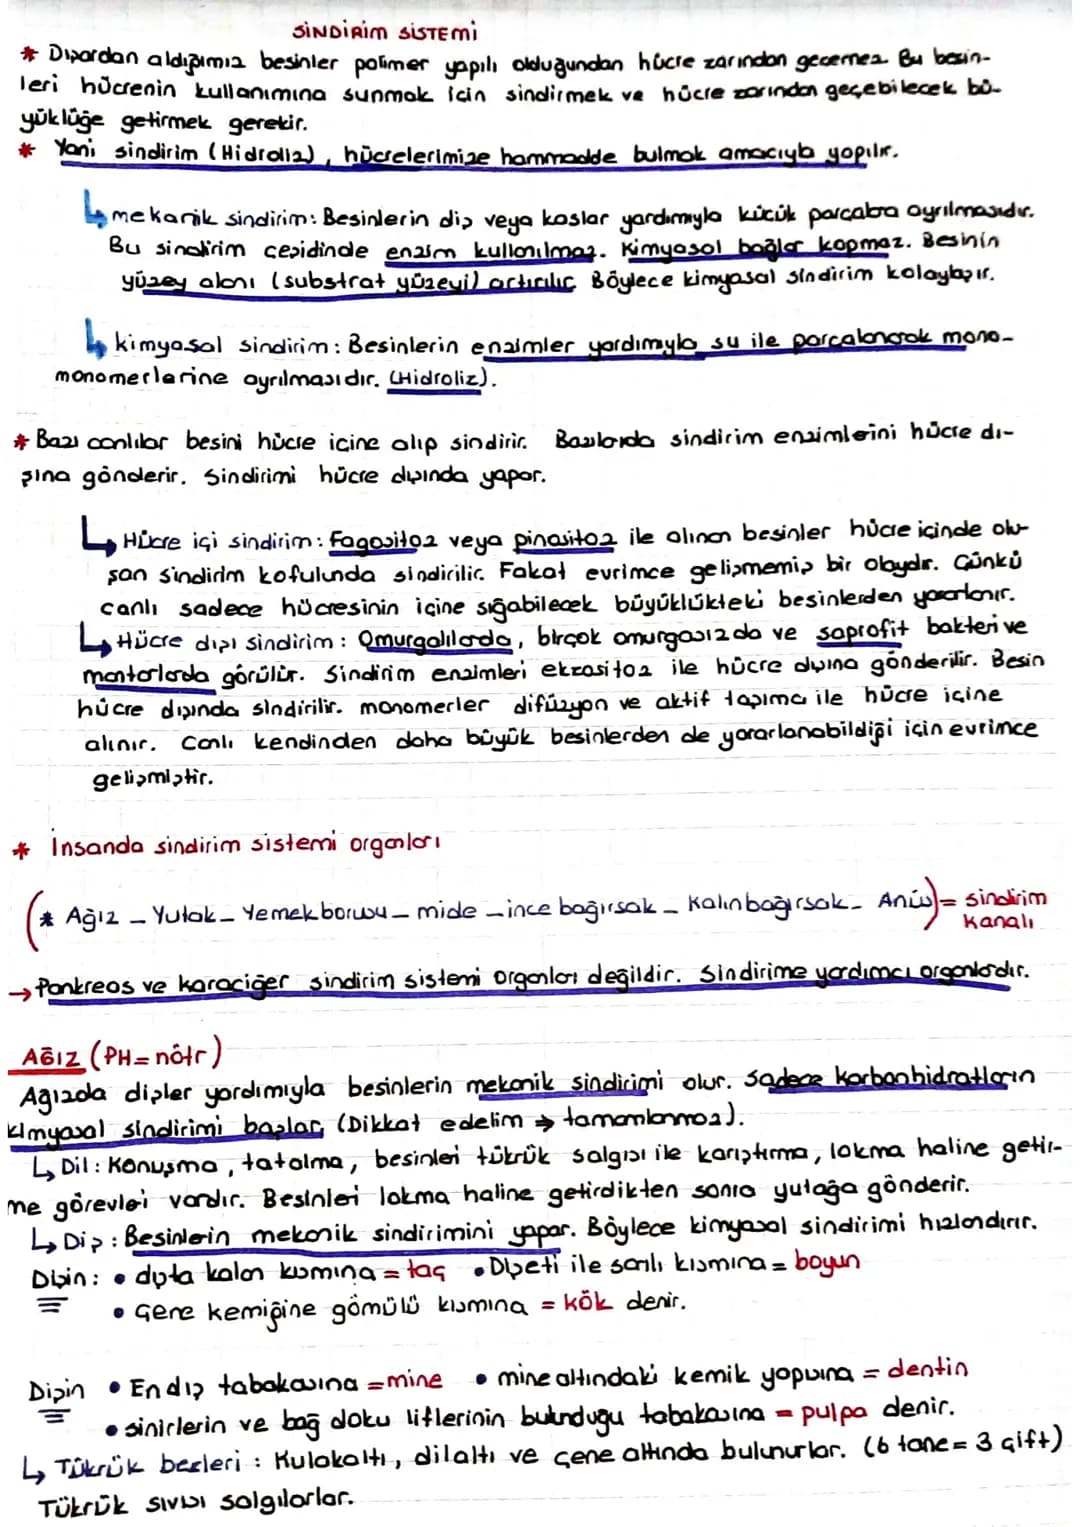 SİNDİRİM SİSTEMİ
* Dışardan aldığımız besinler polimer yapılı olduğundan hücre zarından geçemez. Bu besin-
leri hücrenin kullanımına sunmak için sindirmek ve hücre zarından geçebilecek bü-
yüklüğe getirmek gerekir.
* Yani sindirim (Hidroliz), hücrelerimize hammadde bulmak amacıyla yapılır.
↳ mekanik sindirim: Besinlerin diş veya kaslar yardımıyla küçük parçalara ayrılmasıdır.
Bu sindirim çeşidinde enzim kullanılmaz. Kimyasal bağlar kopmaz. Besinin
yüzey alanı (substrat yüzeyi) artırılır. Böylece kimyasal sindirim kolaylaşır.
↳ kimyasal sindirim: Besinlerin enzimler yardımıyla su ile parçalanarak mono-
monomerlerine ayrılmasıdır. (Hidroliz).
* Bazı canlılar besini hücre içine alıp sindirir. Bazılarıda sindirim enzimlerini hücre dı-
şına gönderir. Sindirimi hücre dışında yapar.
↳ Hücre içi sindirim: Fagositoz veya pinositoz ile alınan besinler hücre içinde olu-
şan sindirim kofulunda sindirilir. Fakat evrimce gelişmemiş bir olaydır. Çünkü
canlı sadece hücresinin içine sığabilecek büyüklükteki besinlerden yararlanır.
↳ Hücre dışı sindirim: Omurgalılarda, birçok omurgasızda ve saprofit bakteri ve
mantarlarda görülür. Sindirim enzimleri ekzositoz ile hücre dışına gönderilir. Besin
hücre dışında sindirilir. monomerler difüzyon ve aktif taşıma ile hücre içine
alınır. Canlı kendinden daha büyük besinlerden de yararlanabildiği için evrimce
gelişmiştir.
* İnsanda sindirim sistemi organları
(* Ağız - Yutak - Yemek borusu - mide - ince bağırsak - Kalın bağırsak - Anüs) = sindirim
kanalı
→ Pankreas ve karaciğer sindirim sistemi organları değildir. Sindirime yardımcı organlardır.
AĞIZ (PH = nötr)
Ağızda dişler yardımıyla besinlerin mekanik sindirimi olur. Sadece karbonhidratların
kimyasal sindirimi başlar. (Dikkat edelim → tamamlanmaz).
↳ Dil: Konuşma, tatalma, besinleri tükrük salgısı ile karıştırma, lokma haline getir-
me görevleri vardır. Besinleri lokma haline getirdikten sonra yutağa gönderir.
↳ Diş: Besinlerin mekanik sindirimini yapar. Böylece kimyasal sindirimi hızlandırır.
Dişin: • dışta kalan kısmına = taç • Dişeti ile sarılı kısmına = boyun
• Çene kemiğine gömülü kısmına = kök denir.
Dişin • En dış tabakasına = mine • mine altındaki kemik yapısına = dentin
• sinirlerin ve bağ doku liflerinin bulunduğu tabakasına = pulpa denir.
↳ Tükrük bezleri: Kulakaltı, dilaltı ve çene altında bulunurlar. (6 tane = 3 çift)
Tükrük sıvısı salgılarlar.